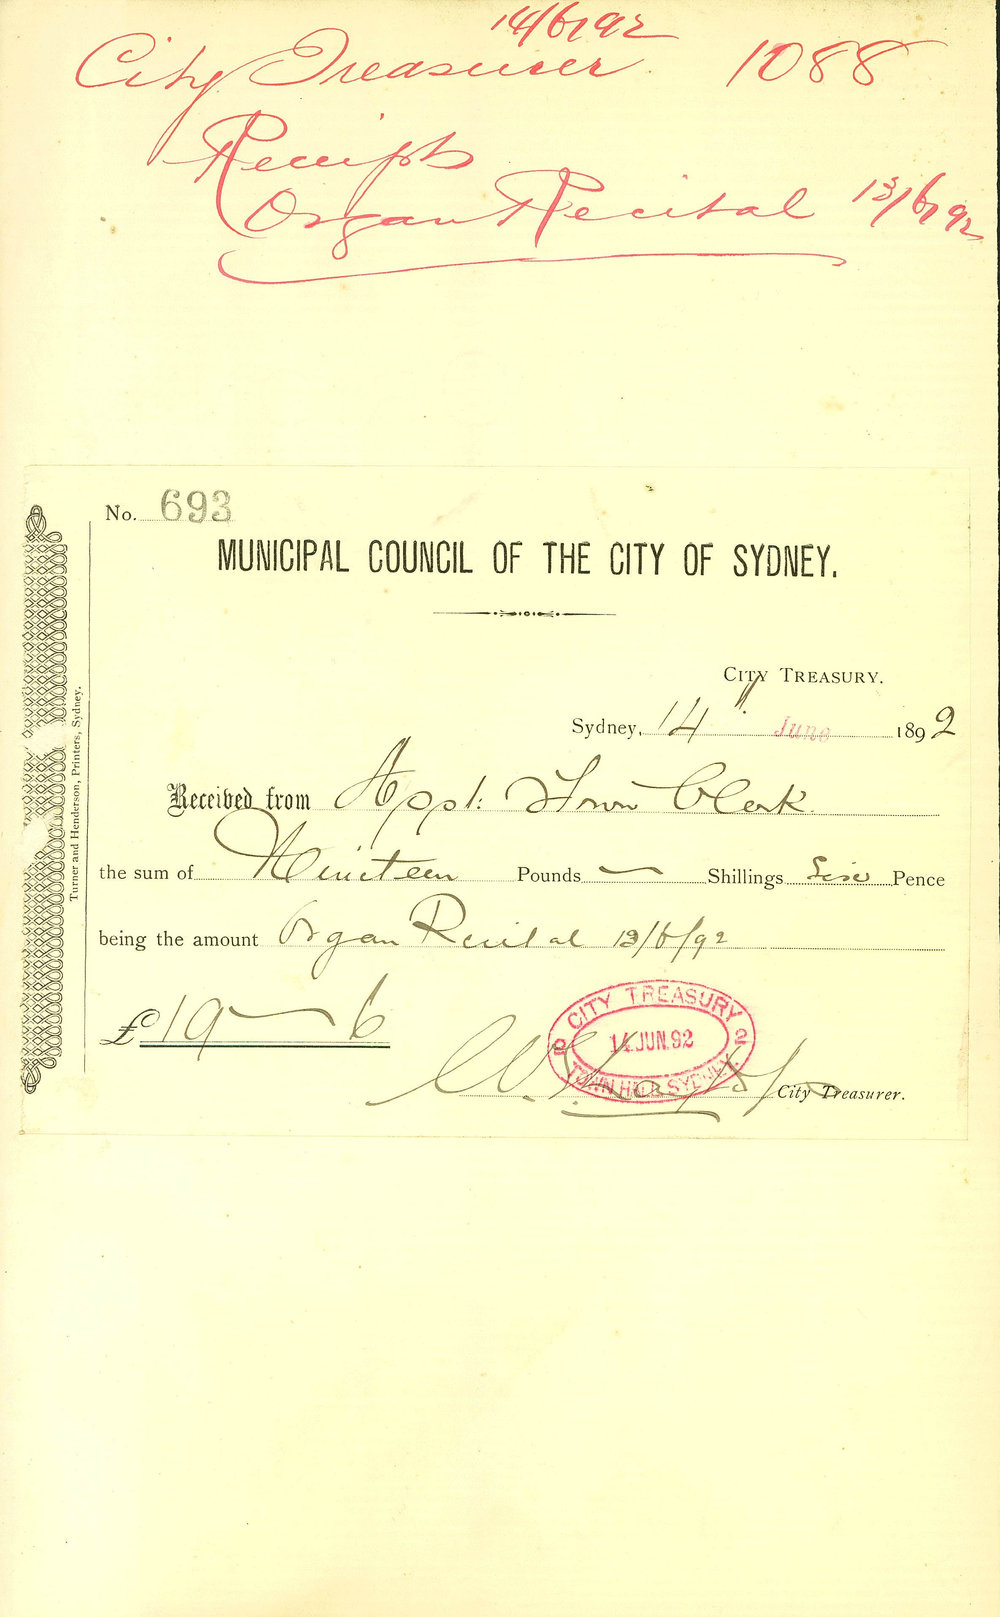 14/6/92
City Treasurer 1088
Receipts
Organ Recital 13/6/92
No. 693
MUNICIPAL COUNCIL OF THE CITY OF SYDNEY.
CITY TREASURY.
Sydney, 14 June 1892
Received from Town Clerk
the sum of Nineteen Pounds — Shillings Six Pence
being the amount Organ Recital 13/6/92
£19 — 6
CITY TREASURY
14 JUN. 92
TOWN HALL SYDNEY
City Treasurer.
Turner and Henderson, Printers, Sydney.